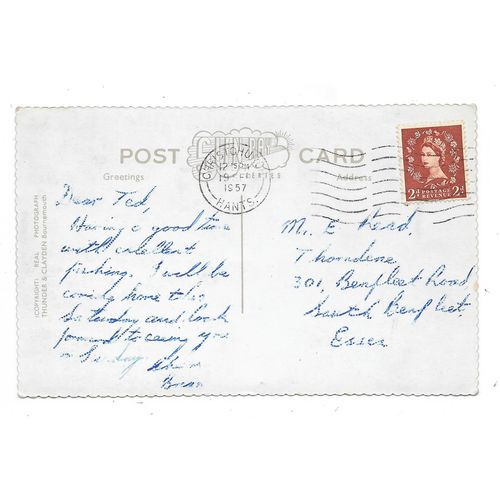 POST CARD
Greetings
Address
CHRISTCHURCH
1957
HANTS.
2d POSTAGE REVENUE 2d
(COPYRIGHT) REAL PHOTOGRAPH
THUNDER & CLAYDEN Bournemouth
Dear Ted,
Having a good time
with excellent
fishing. I will be
coming home this
Saturday and look
forward to seeing you
on Sunday.
Brian
Mr. E
Thorndene
301, Benfleet Road
South Benfleet
Essex